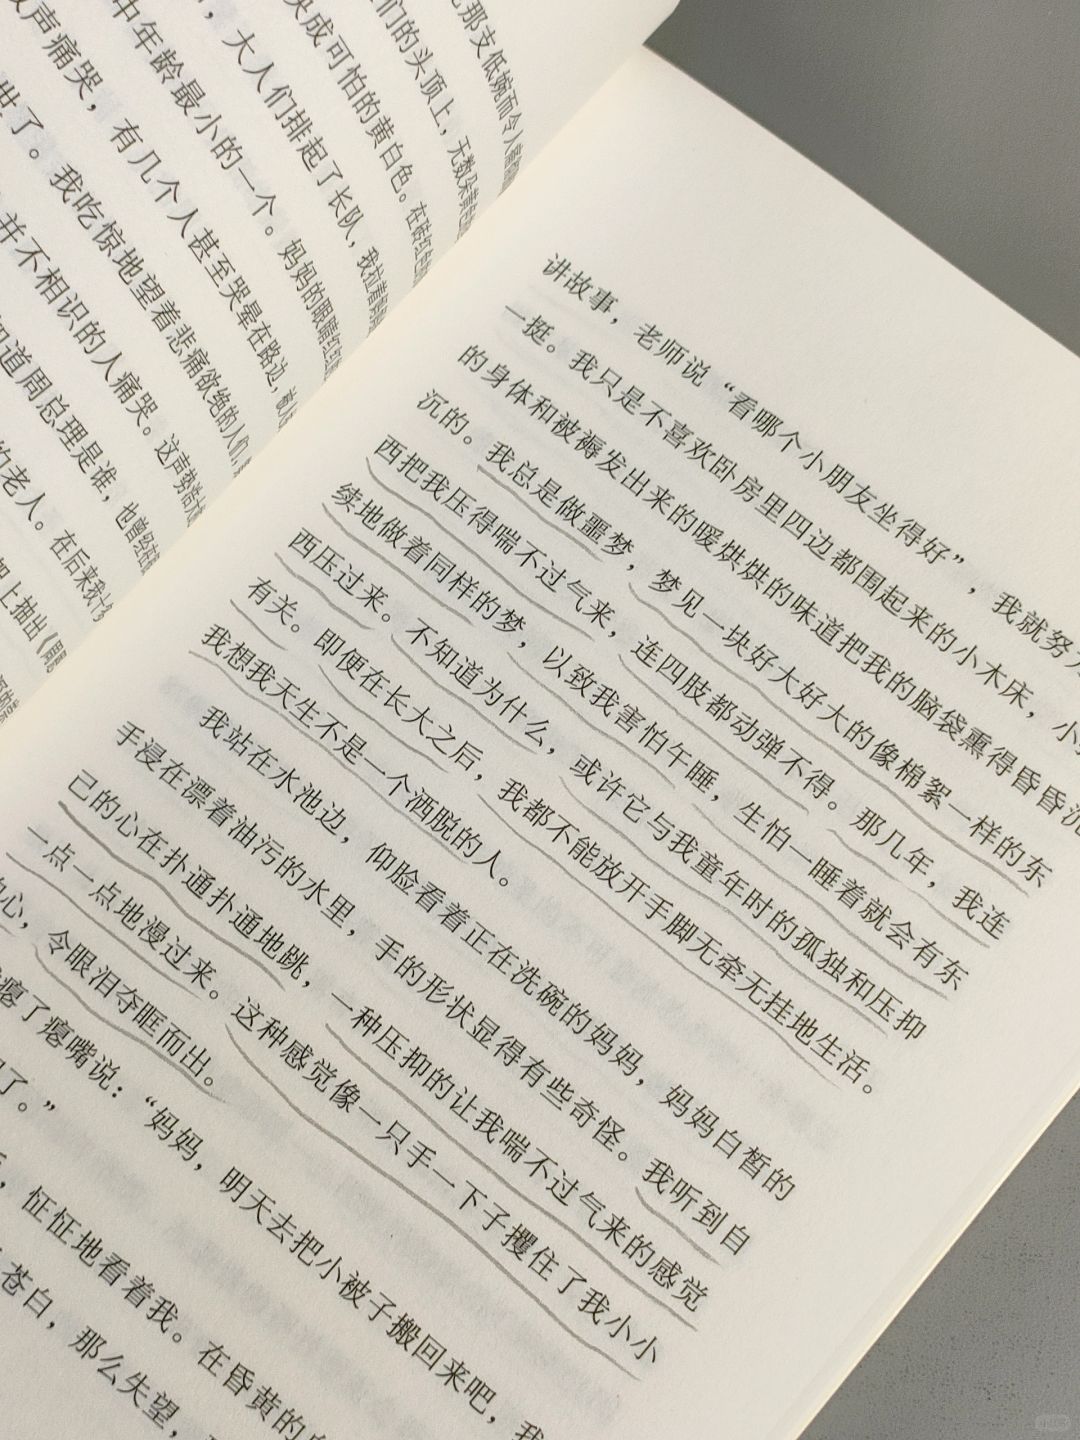 那支低婉而令人
们的头顶上，无数朵黄色
成可怕的黄白色。在
，大人们排起了长队，我拉着妈妈
中年龄最小的一个。妈妈的眼睛红红
声痛哭，有几个人甚至哭晕在路边，
世了。我吃惊地望着悲痛欲绝的人们，
并不相识的人痛哭。这声势浩大
道周总理是谁，也曾经在
的老人。在后来我
架上抽出《周
讲故事，老师说“看哪个小朋友坐得好”，我就努力
一挺。我只是不喜欢卧房里四边都围起来的小木床，小
的身体和被褥发出来的暖烘烘的味道把我的脑袋熏得昏昏沉
沉的。我总是做噩梦，梦见一块好大好大的像棉絮一样的东
西把我压得喘不过气来，连四肢都动弹不得。那几年，我连
续地做着同样的梦，以致我害怕午睡，生怕一睡着就会有东
西压过来。不知道为什么，或许它与我童年时的孤独和压抑
有关。即便在长大之后，我都不能放开手脚无牵无挂地生活。
我想我天生不是一个洒脱的人。
我站在水池边，仰脸看着正在洗碗的妈妈，妈妈白皙的
手浸在漂着油污的水里，手的形状显得有些奇怪。我听到自
己的心在扑通扑通地跳，一种压抑的让我喘不过气来的感觉
一点一点地漫过来。这种感觉像一只手一下子攫住了我小小
的心，令眼泪夺眶而出。
瘪了瘪嘴说：“妈妈，明天去把小被子搬回来吧，我
了。”
，怔怔地看着我。在昏黄的
苍白，那么失望，